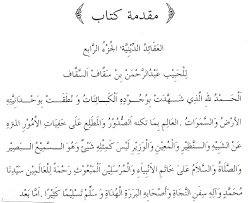 ﴿ مقدمة كتاب ﴾
العقائد الدينية، الجزء الرابع
للحبيب عبدالرحمن بن سقاف السقاف
الحمد لله الذي شهدت بوجوده الكائنات و نطقت بوحدانيته
الأرض والسموات . العالم بما تكنه الصدور والمطلع على خفيات الأمور المنزه
عن الشبيه والنظير والمعين والوزير ليس كمثله شيئ وهو السميع البصير
والصلاة والسلام على خاتم الأنبياء والمرسلين المبعوث رحمة للعالمين سيدنا
محمد وآله سفن النجاة وأصحابه البررة الهداة و سلم تسليما كثيرا . أما بعد